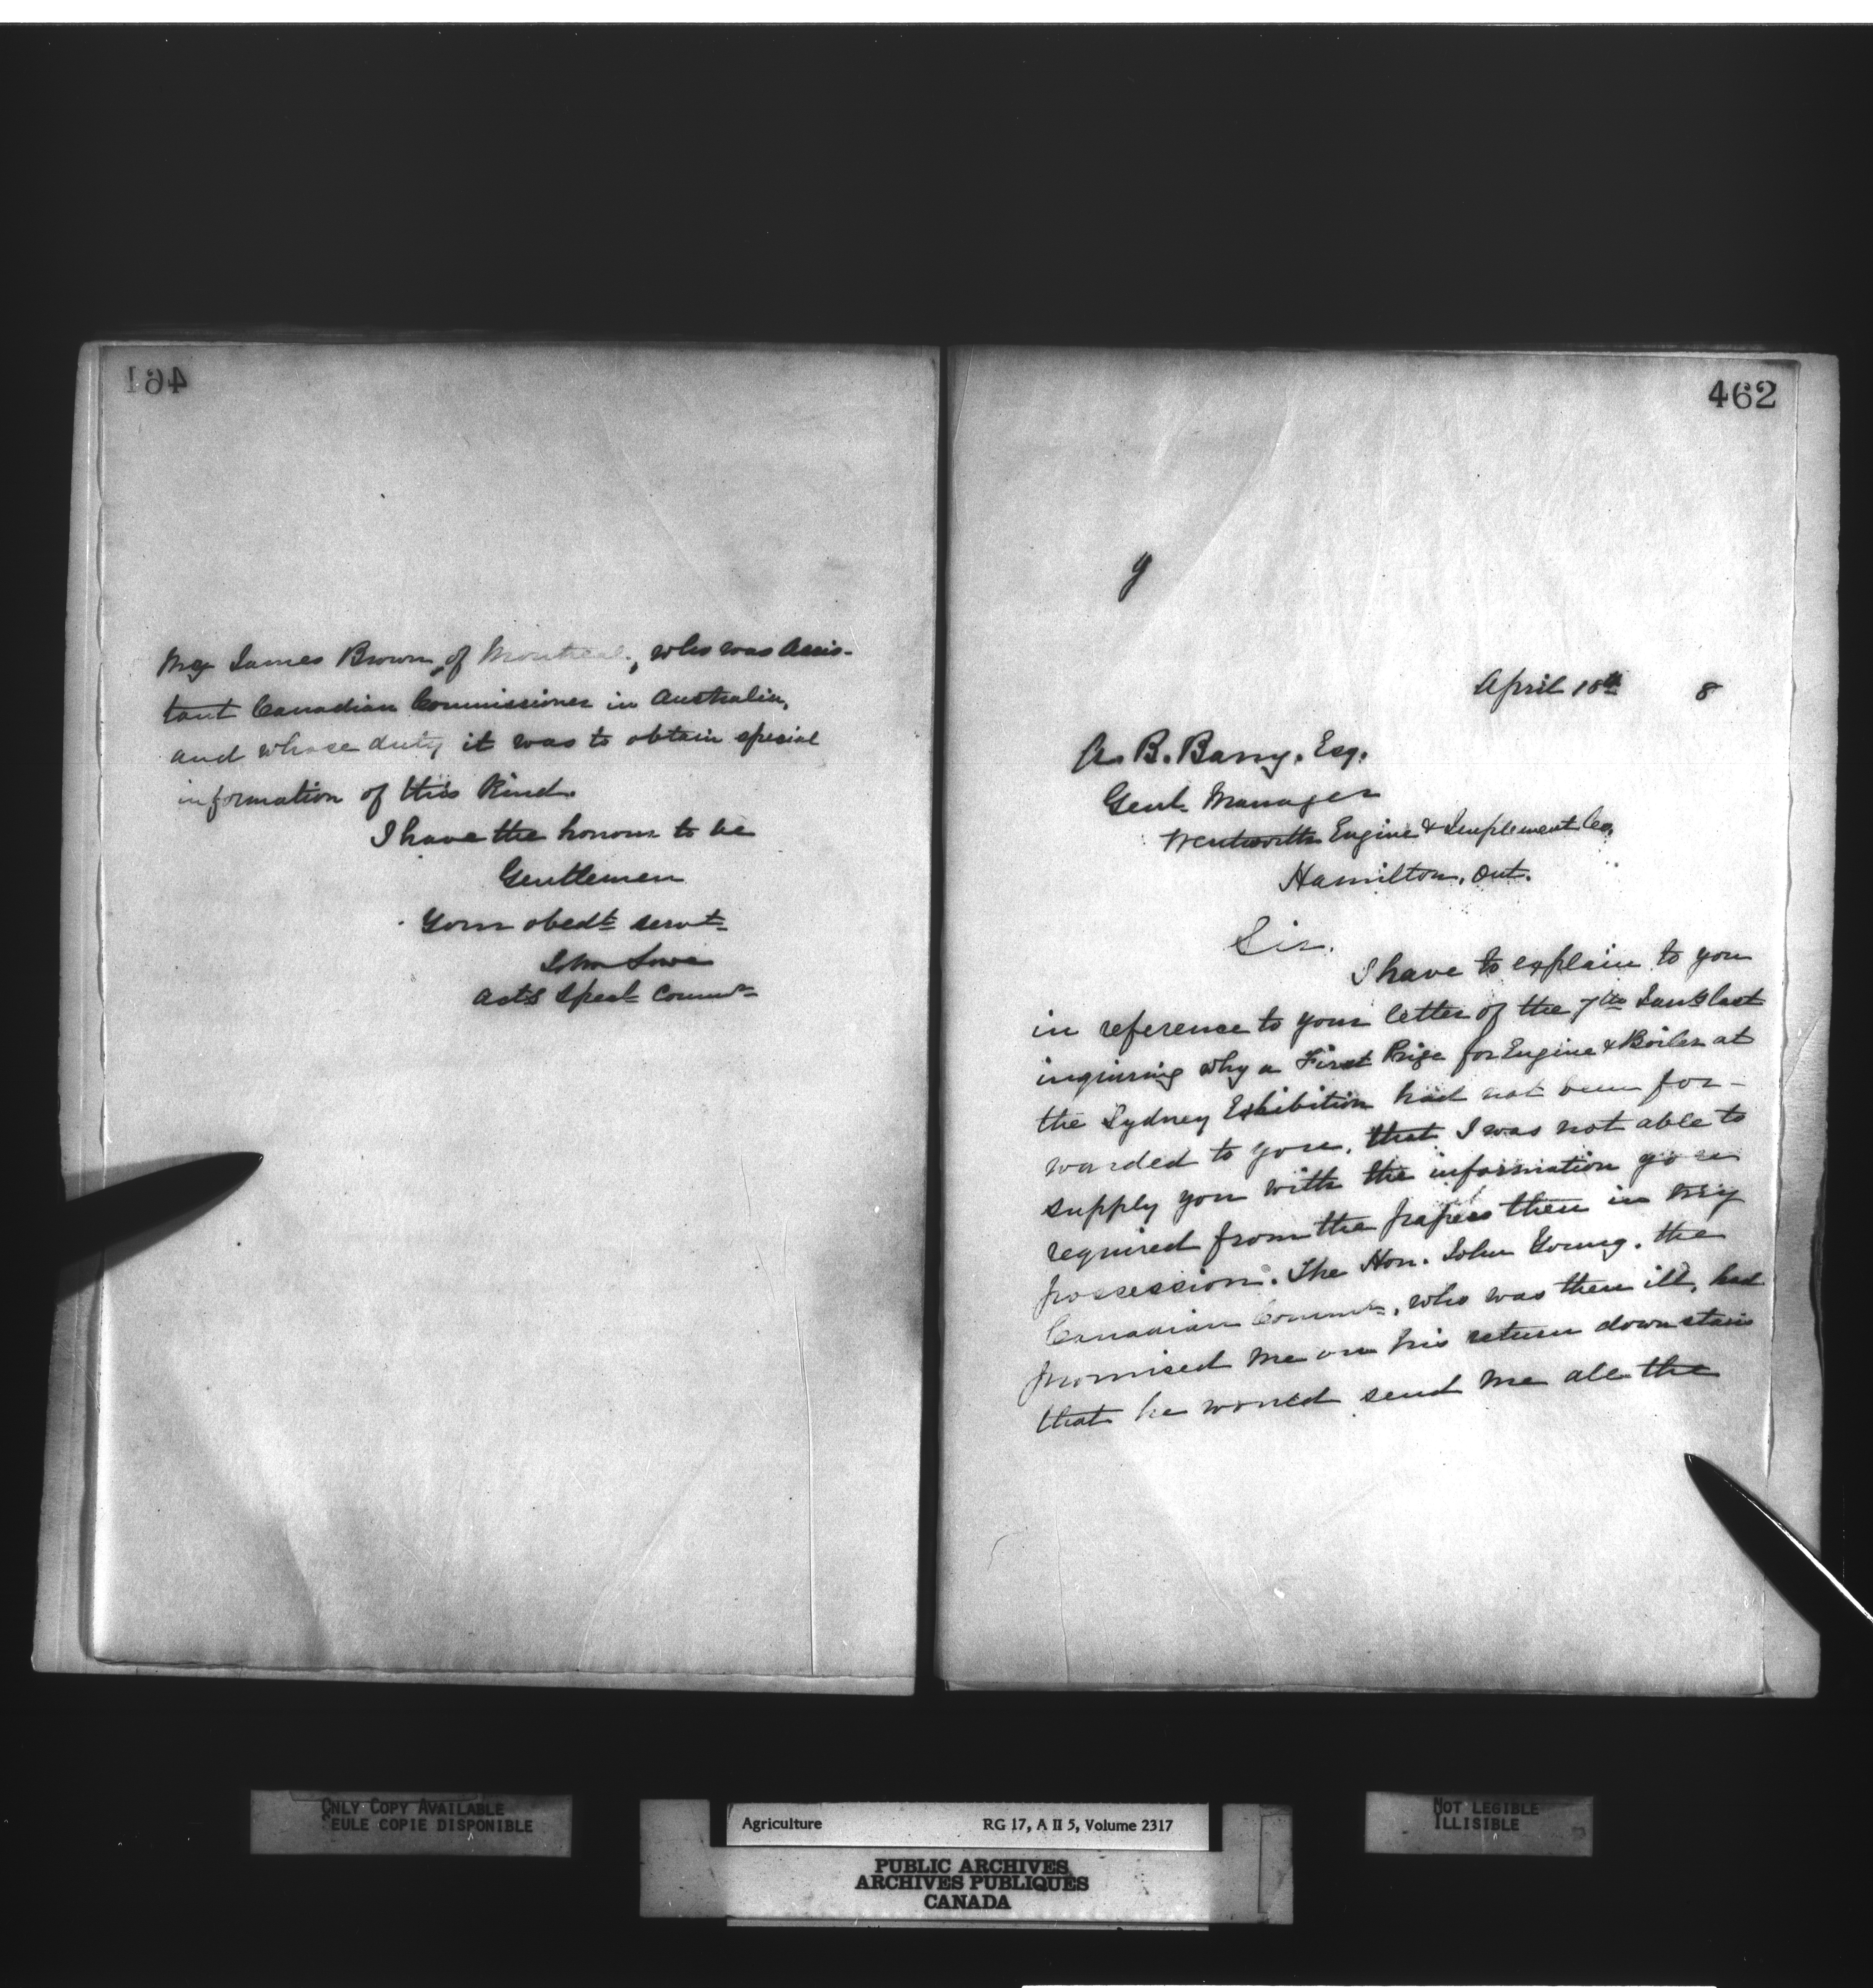 461
Mr James Brown, of Montreal, who was Assis-
tant Canadian Commissioner in Australia,
and whose duty it was to obtain special
information of this Kind.
I have the honour to be
Gentlemen
Your obedt servt
John Lowe
Actg Specl Commr
462
April 18th 8
A. B. Barry. Esq.
Genl. Manager
Wentworth Engine & Implement Co.
Hamilton. Ont.
Sir.
I have to explain to you
in reference to your letter of the 7th last
inquiring why a First Prize for Engine & Boiler at
the Sydney Exhibition had not been for-
warded to you, that I was not able to
supply you with the information you
required from the papers then in my
possession. The Hon. John Young. the
Canadian Commr, who was then ill, had
promised me on his return downstairs
that he would send me all the
ONLY COPY AVAILABLE
SEULE COPIE DISPONIBLE
Agriculture RG 17, A II 5, Volume 2317
PUBLIC ARCHIVES
ARCHIVES PUBLIQUES
CANADA
NOT LEGIBLE
ILLISIBLE